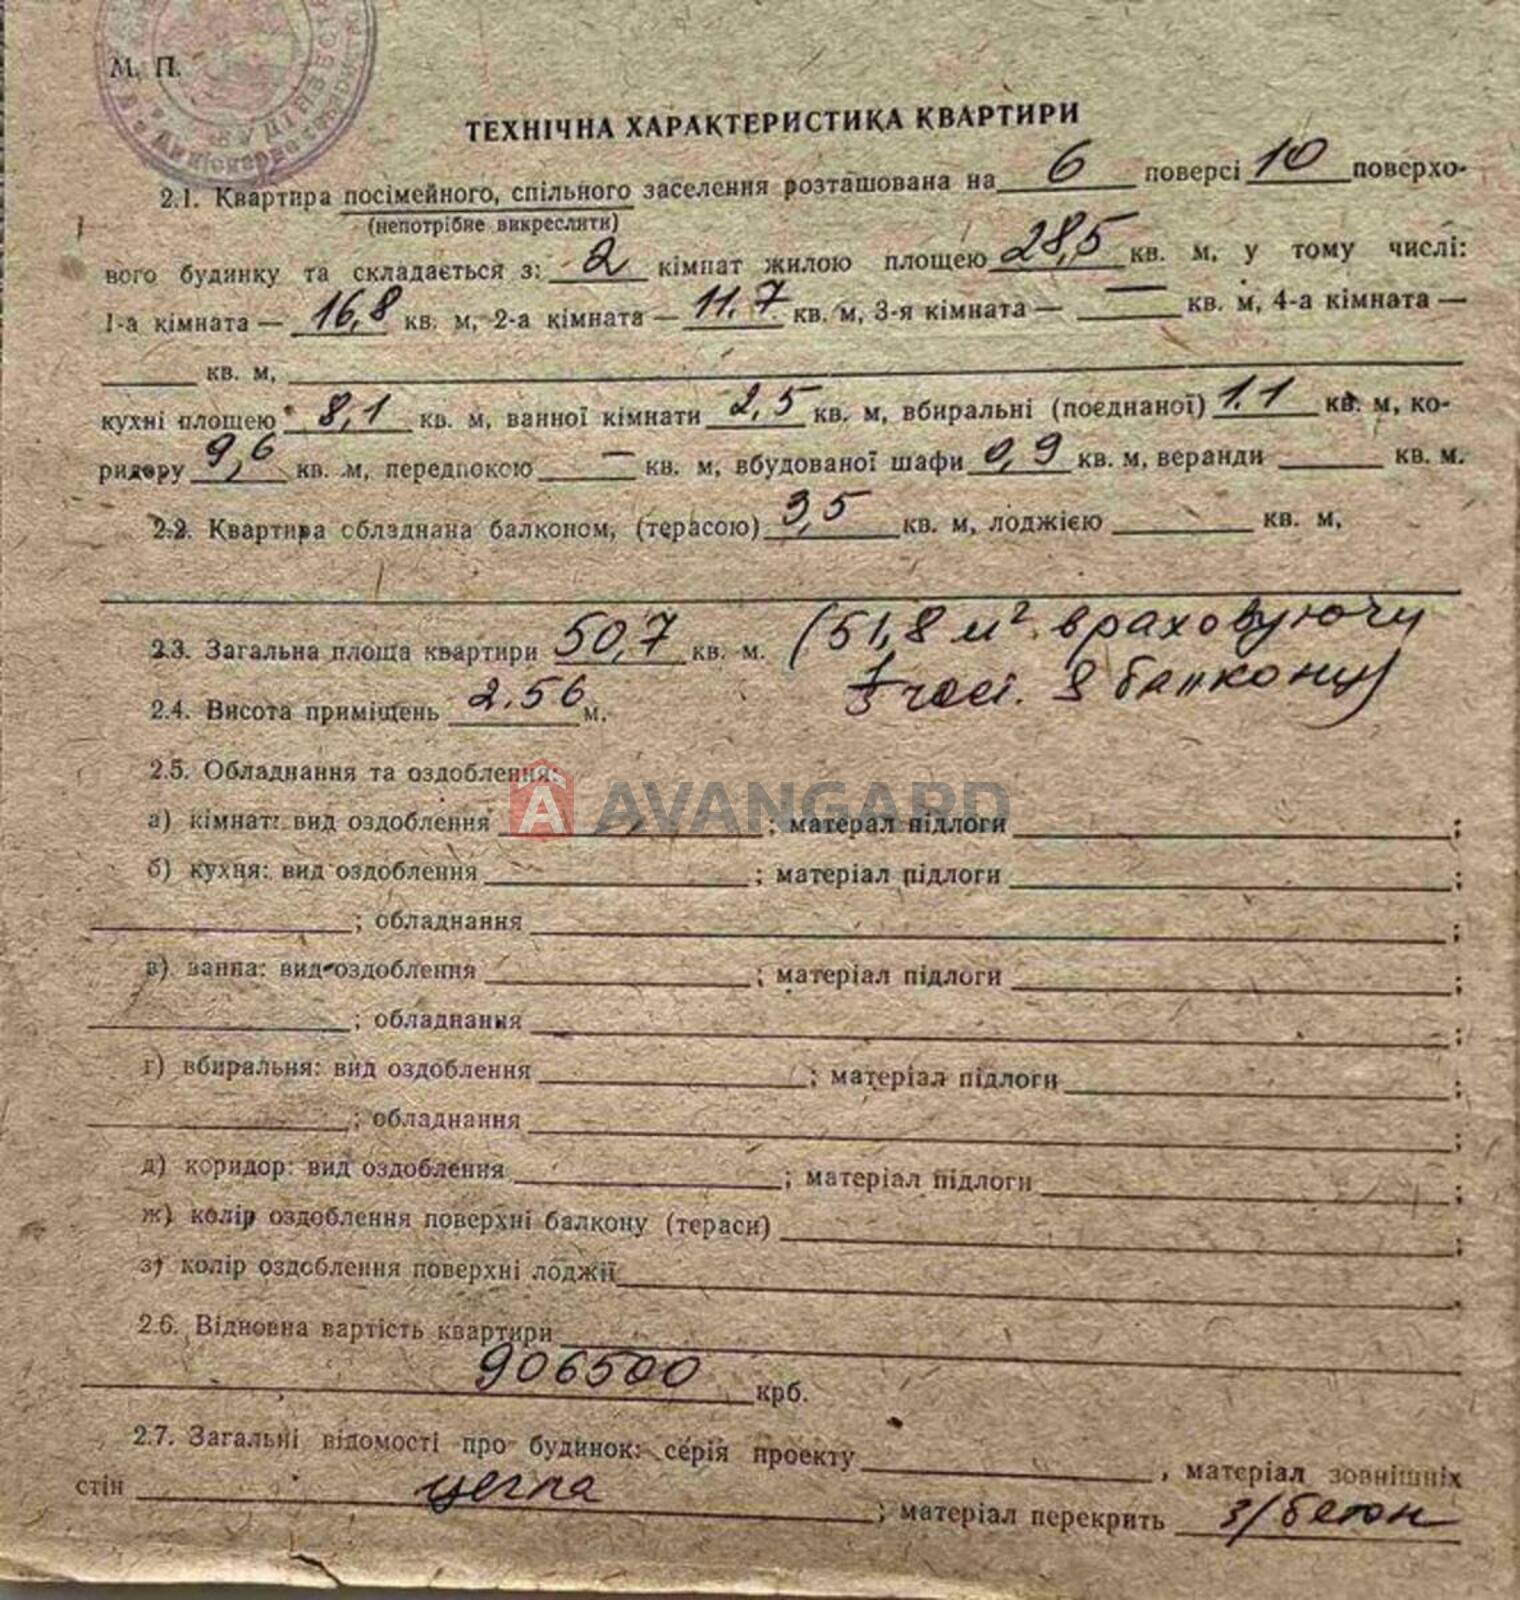 М. П.
ТЕХНІЧНА ХАРАКТЕРИСТИКА КВАРТИРИ
2.1. Квартира посімейного, спільного заселення розташована на 6 поверсі 10 поверхо-
(непотрібне викреслити)
вого будинку та складається з: 2 кімнат жилою площею 28,5 кв. м, у тому числі:
1-а кімната — 16,8 кв. м, 2-а кімната — 11.7 кв. м, 3-я кімната — — кв. м, 4-а кімната —
кв. м,
кухні площею 8,1 кв. м, ванної кімнати 2,5 кв. м, вбиральні (поєднаної) 1.1 кв. м, ко-
ридору 9,6 кв. м, передпокою — кв. м, вбудованої шафи 0,9 кв. м, веранди кв. м.
2.2. Квартира обладнана балконом, (терасою) 3,5 кв. м, лоджією кв. м,
2.3. Загальна площа квартири 50,7 кв. м. (51,8 м² враховуючи
балкону)
2.4. Висота приміщень 2.56 м.
2.5. Обладнання та оздоблення:
AVANGARD
а) кімнат: вид оздоблення ; матерал підлоги ;
б) кухня: вид оздоблення ; матеріал підлоги ;
; обладнання ;
в) ванна: вид оздоблення ; матеріал підлоги ;
; обладнання ;
г) вбиральня: вид оздоблення ; матеріал підлоги ;
; обладнання ;
д) коридор: вид оздоблення ; матеріал підлоги ;
ж) колір оздоблення поверхні балкону (тераси) ;
з) колір оздоблення поверхні лоджії .
2.6. Відновна вартість квартири
906500 крб.
2.7. Загальні відомості про будинок: серія проекту , матеріал зовнішніх
стін цегла ; матеріал перекрить з/бетон